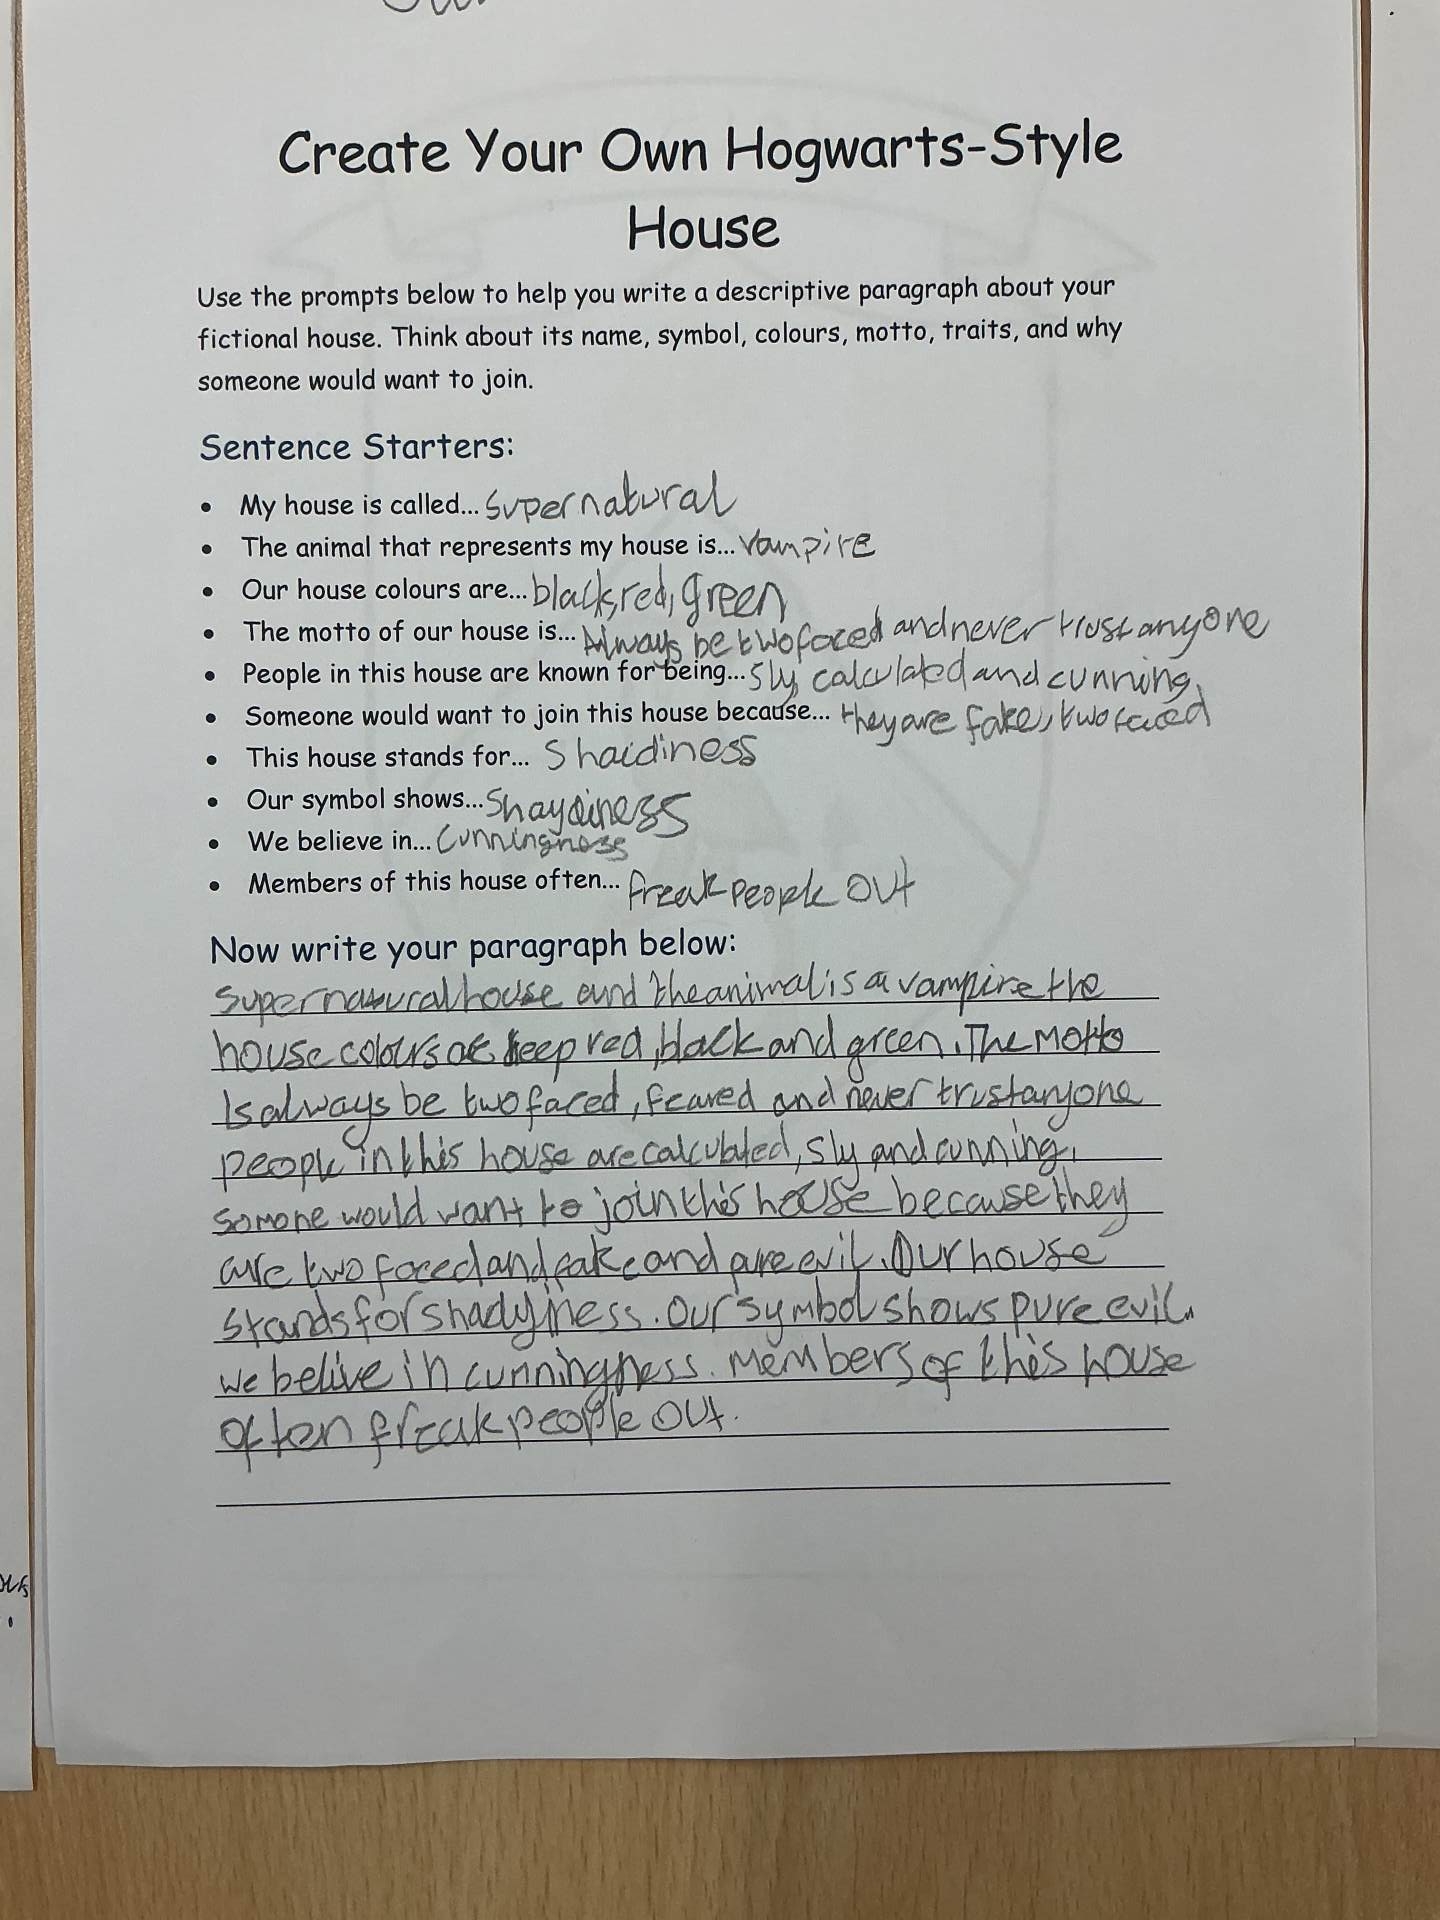 Create Your Own Hogwarts-Style
House
Use the prompts below to help you write a descriptive paragraph about your
fictional house. Think about its name, symbol, colours, motto, traits, and why
someone would want to join.
Sentence Starters:
• My house is called... Supernatural
• The animal that represents my house is... vampire
• Our house colours are... black, red, green
• The motto of our house is... Always be twofaced and never trust anyone
• People in this house are known for being... sly, calculated and cunning.
• Someone would want to join this house because... they are fake, twofaced
• This house stands for... Shaidiness
• Our symbol shows... Shaydiness
• We believe in... Cunningness
• Members of this house often... freak people out
Now write your paragraph below:
Supernatural house and the animal is a vampire the
house colours are red, black and green. The Motto
Is always be twofaced, feared and never trust anyone
people in this house are calculated, sly and cunning.
somone would want to join this house because they
are two faced and fake and pure evil. Our house
stands for shadyiness. Our symbol shows pure evil.
we belive in cunningness. Members of this house
often freak people out.